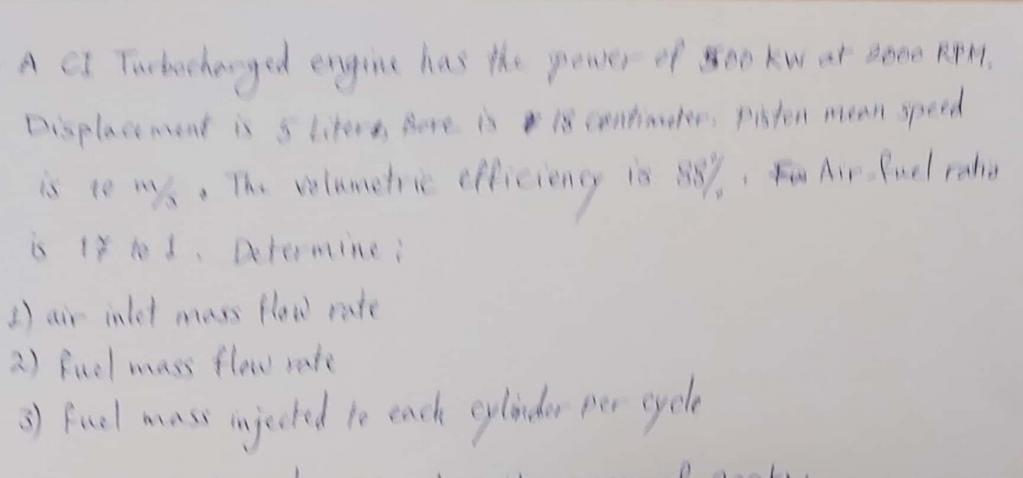 A CI Turbocharged engine has the power of 500 kw at 2000 RPM,
Displacement is 5 liters, Bore is 18 centimeter, piston mean speed
is 10 m/s. The volumetric efficiency is 88%. Air-fuel ratio
is 17 to 1. Determine:
1) air inlet mass flow rate
2) fuel mass flow rate
3) fuel mass injected to each cylinder per cycle